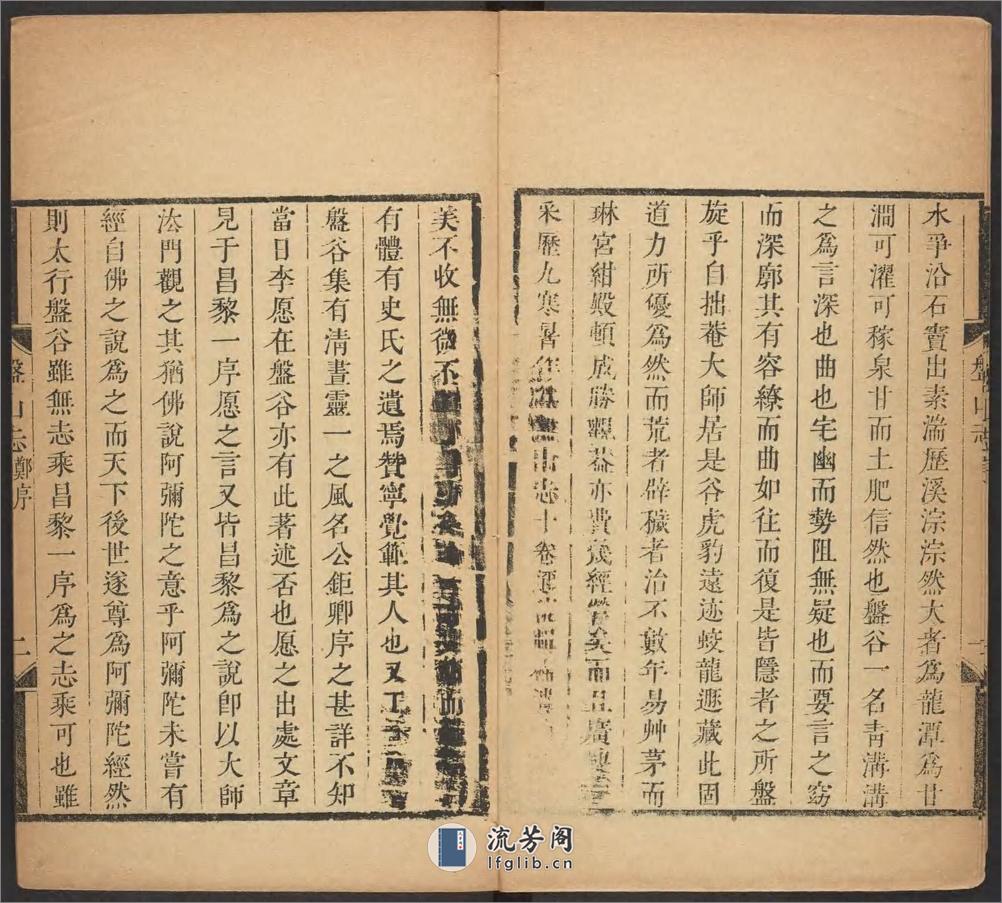 水爭沿石竇出素湍歷溪淙淙然大者爲龍潭爲甘
澗可濯可稼泉甘而土肥信然也盤谷一名靑溝溝
之爲言深也曲也宅幽而勢阻無疑也而要言之窈
而深廓其有容繚而曲如往而復是皆隱者之所盤
旋乎自拙菴大師居是谷虎豹遠迹蛟龍遯藏此固
道力所優爲然而荒者辟穢者治不數年易艸茅而
琳宮紺殿頓成勝亦費幾經營矣而且廣
采歷九寒暑山志十卷
盤山志
美不收無微不
有體有史氏之遺焉贊寧覺範其人也又工
盤谷集有淸晝靈一之風名公鉅卿序之甚詳不知
當日李愿在盤谷亦有此著述否也愿之出處文章
見于昌黎一序愿之言又皆昌黎爲之說卽以大師
㳒門觀之其猶佛說阿彌陀之意乎阿彌陀未嘗有
經自佛之說爲之而天下後世遂尊爲阿彌陀經然
則太行盤谷雖無志乘昌黎一序爲之志乘可也雖
盤山志 鄭序 二
流芳阁
lfglib.cn